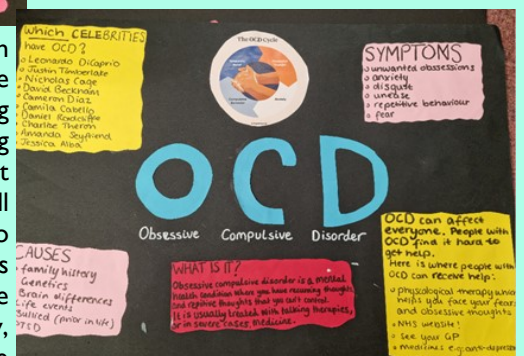 Which CELEBRITIES
have OCD?
Leonardo DiCaprio
Justin Timberlake
Nicholas Cage
David Beckham
Cameron Diaz
Camila Cabello
Daniel Radcliffe
Charlize Theron
Amanda Seyfriend
Jessica Alba
The OCD Cycle
SYMPTOMS
unwanted obsessions
anxiety
disgust
unease
repetitive behaviour
fear
OCD
Obsessive Compulsive Disorder
CAUSES
family history
Genetics
Brain differences
Life events
Bullied (prior in life)
PTSD
WHAT IS IT?
Obsessive compulsive disorder is a mental
health condition where you have recurring thoughts
and repetitive thoughts that you can't control.
It is usually treated with talking therapies,
or in severe cases, medicine.
OCD can affect
everyone. People with
OCD find it hard to
get help.
Here is where people with
OCD can receive help:
physological therapy which
helps you face your fears
and obsessive thoughts
NHS website!
See your GP
medicines e.g. anti-depress